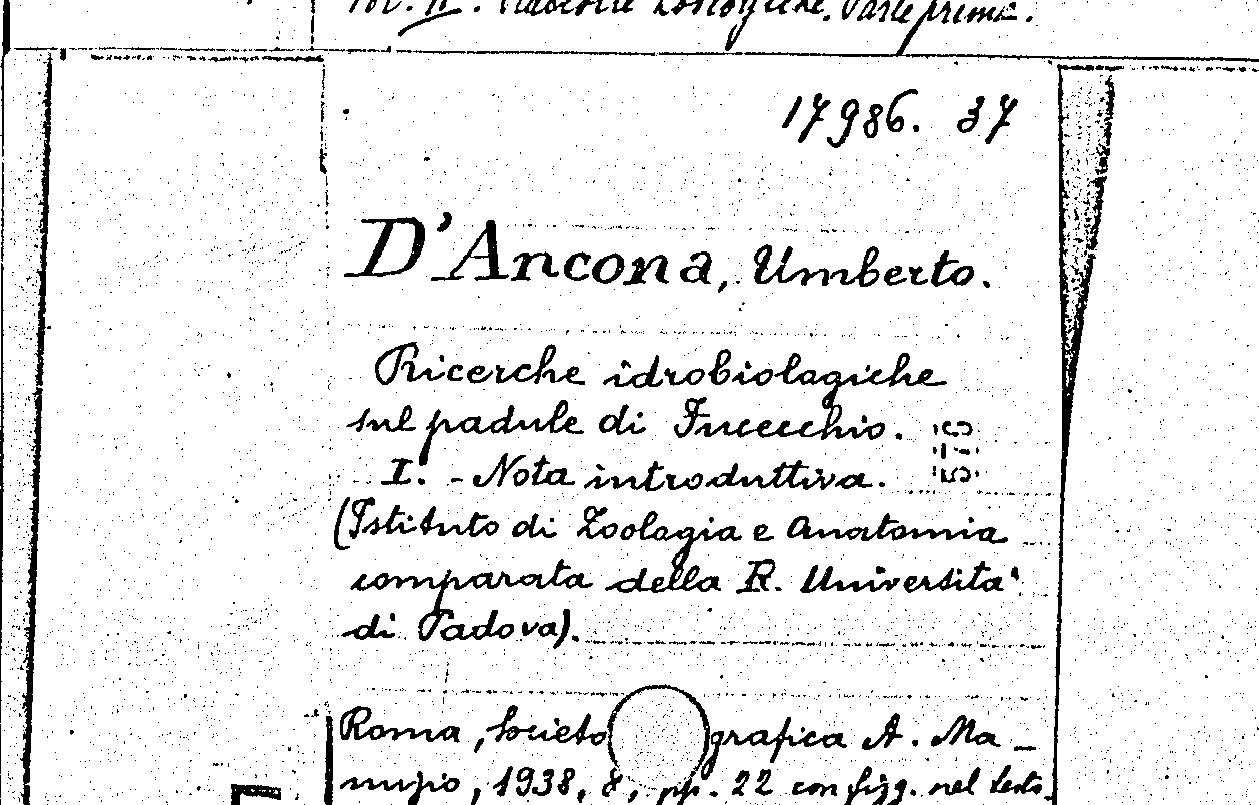 Vol. II. Raccolte Zoologiche. Parte prima.
17986. 37
D'Ancona, Umberto.
Ricerche idrobiologiche
sul padule di Fucecchio.
I. - Nota introduttiva.
(Istituto di Zoologia e Anatomia
comparata della R. Università
di Padova).
Roma, Societ grafica A. Ma-
nuzio, 1938, 8, pp. 22 con figg. nel testo.